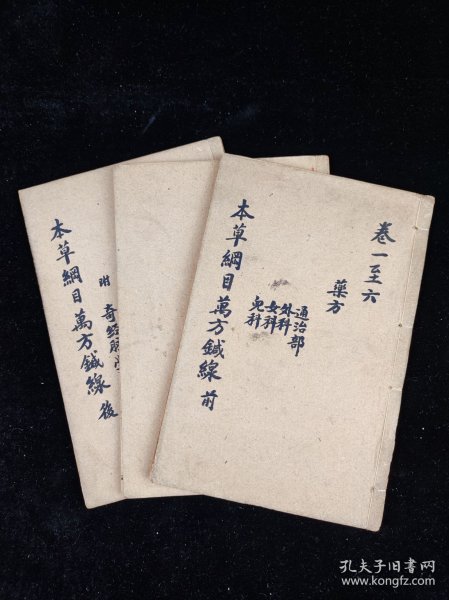 卷一至六
藥方
通治部
外科
女科
児科
本草綱目萬方鍼線 前
附 奇經
本草綱目萬方鍼線 後
孔夫子旧书网
www.kongfz.com